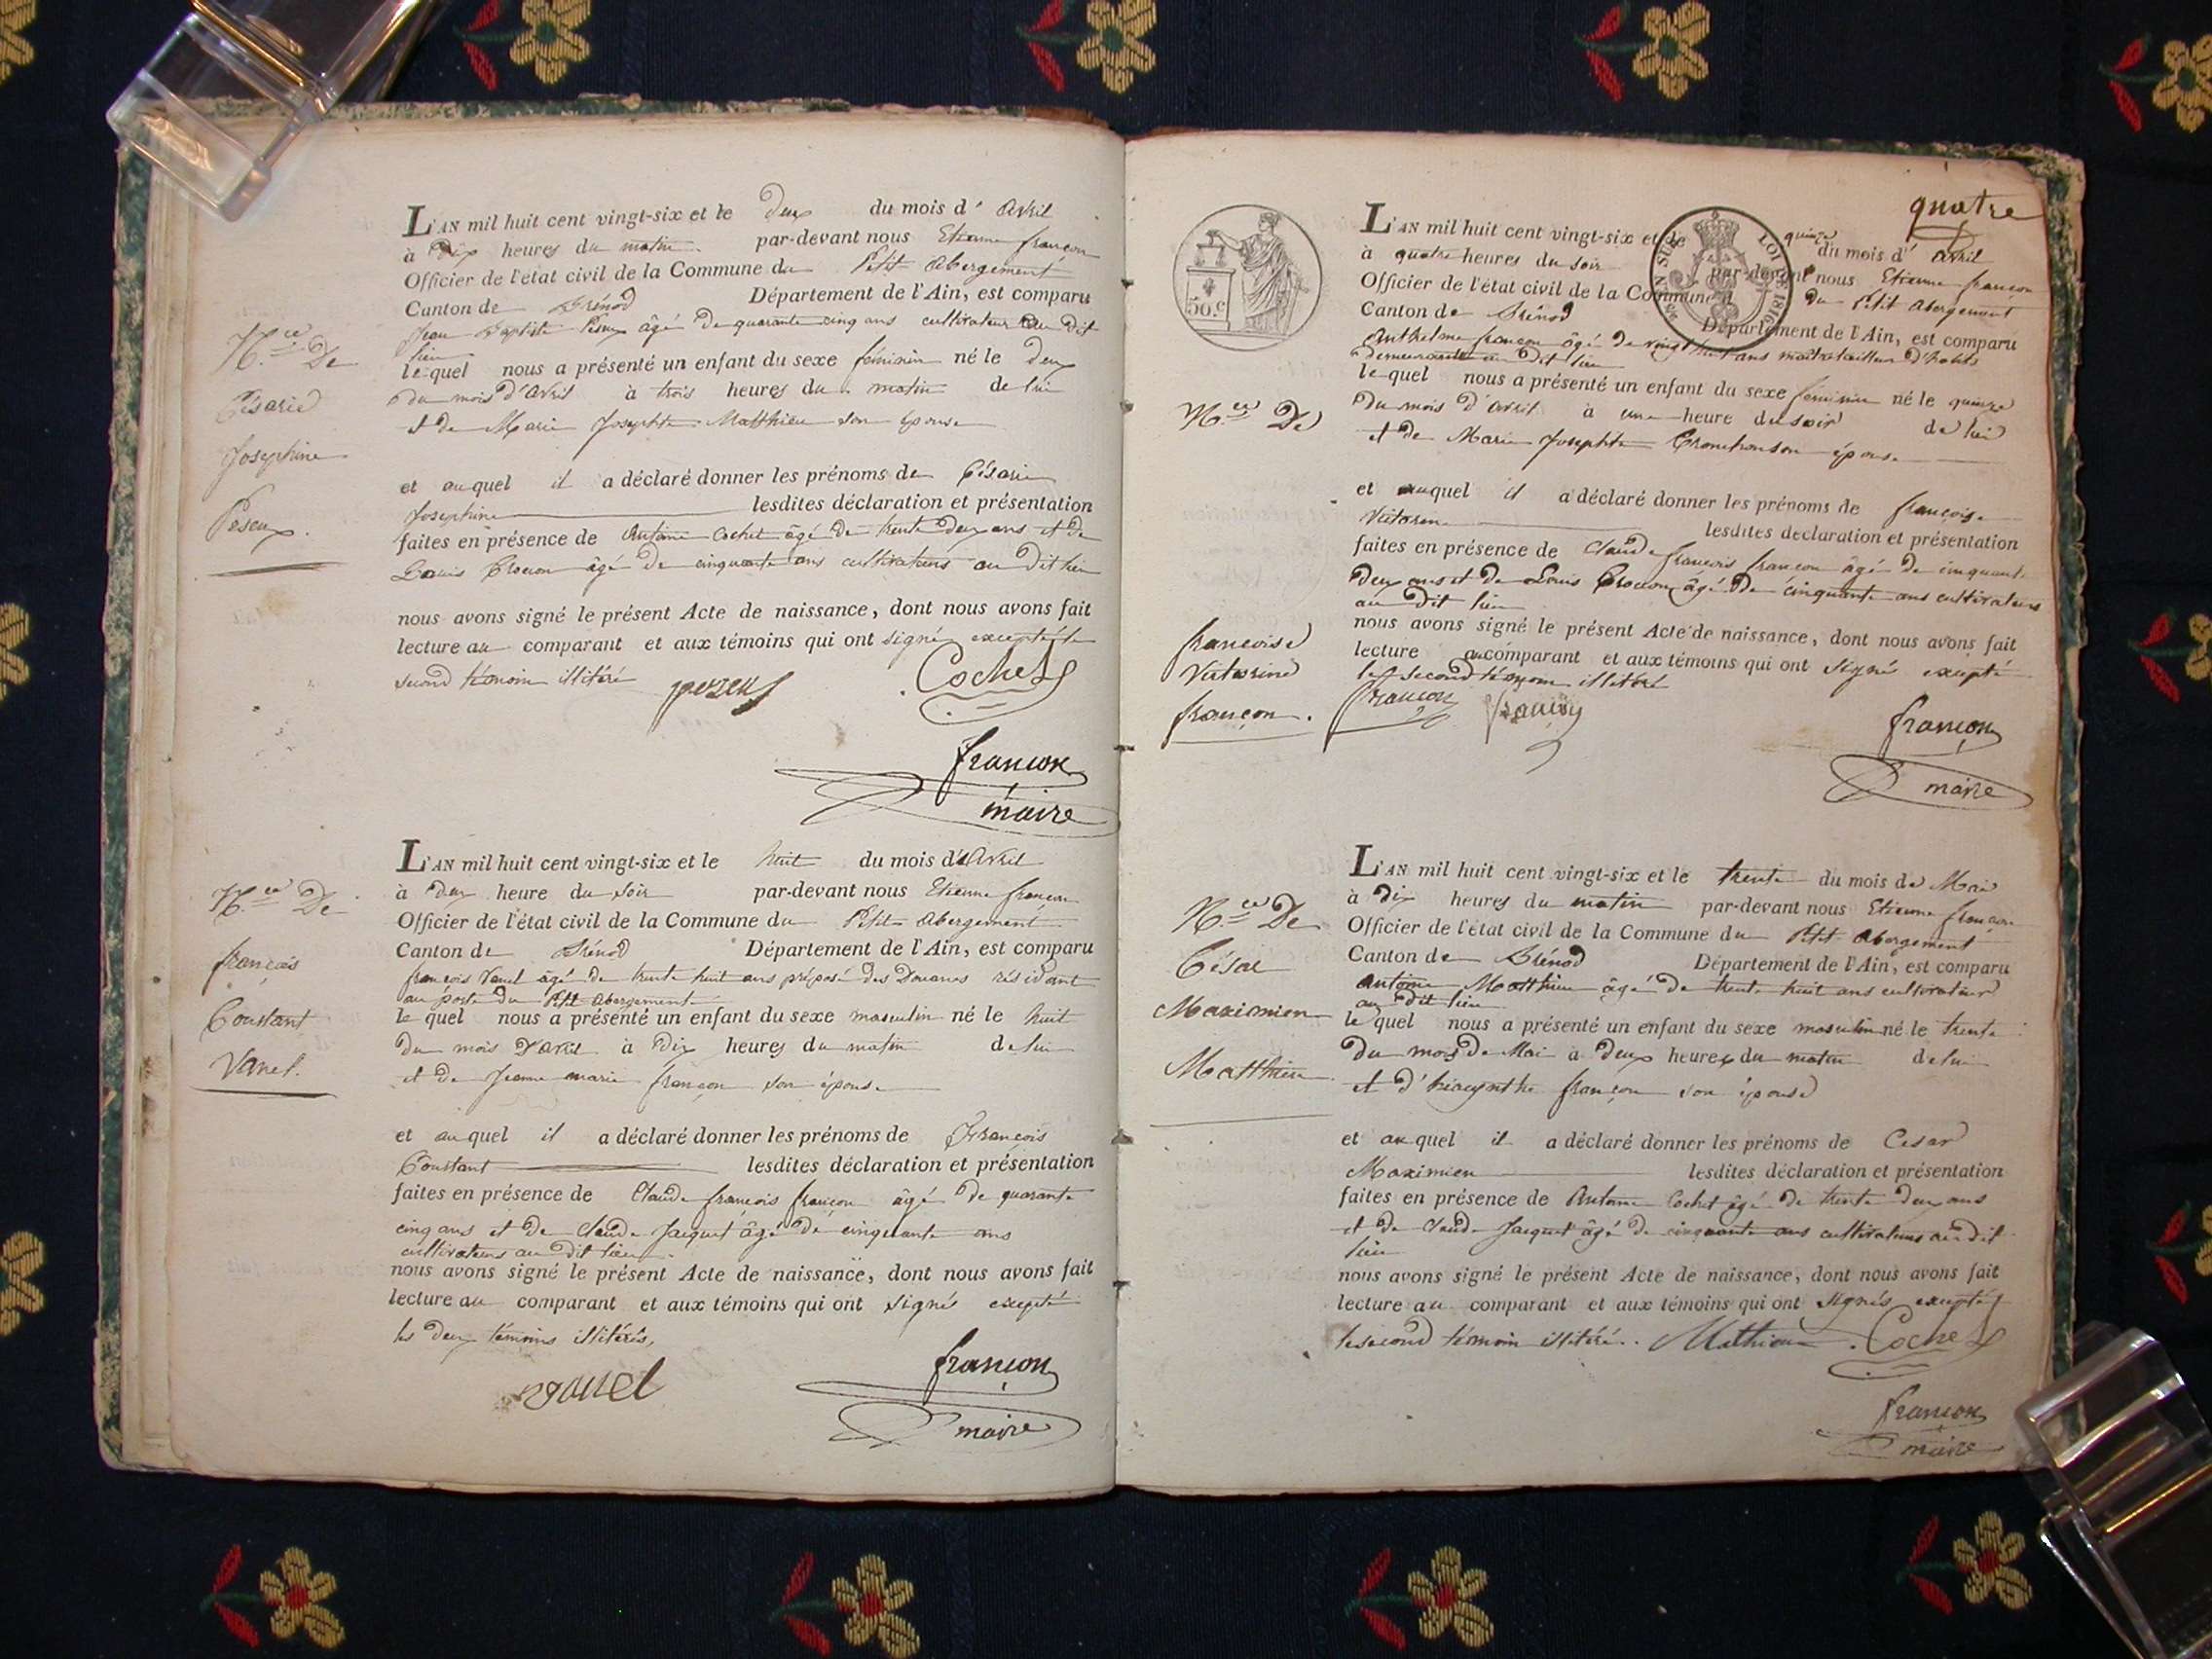 L'AN mil huit cent vingt-six et le deux du mois d' avril
à dix heures du matin par-devant nous Etienne françon
Officier de l'état civil de la Commune du Petit abergement
Canton de Brénod Département de l'Ain, est comparu
Jean Baptiste Peseux âgé de quarante cinq ans cultivateur au dit
lieu
lequel nous a présenté un enfant du sexe féminin né le deux
du mois d'avril à trois heures du matin de lui
et de Marie Josephte Matthieu son épouse
et auquel il a déclaré donner les prénoms de Césarie
Josephine lesdites déclaration et présentation
faites en présence de Antoine Cochet âgé de trente deux ans et de
Louis Crocion âgé de cinquante ans cultivateurs au dit lieu
nous avons signé le présent Acte de naissance, dont nous avons fait
lecture au comparant et aux témoins qui ont signé excepté le
second témoin illitéré
pezeux Cochet
françon
maire
N.ce De
Césarie
Josephine
Peseux.
L'AN mil huit cent vingt-six et le huit du mois d'avril
à deux heure du soir par-devant nous Etienne françon
Officier de l'état civil de la Commune du Petit abergement
Canton de Brénod Département de l'Ain, est comparu
françois Vanel âgé de trente huit ans préposé des Douanes résidant
au poste du Petit abergement
le quel nous a présenté un enfant du sexe masculin né le huit
du mois d'avril à dix heures du matin de lui
et de Jeanne marie françon son épouse
et auquel il a déclaré donner les prénoms de François
Constant lesdites déclaration et présentation
faites en présence de Claude françois françon âgé de quarante
cinq ans et de Claude Jacquet âgé de cinquante ans
cultivateurs au dit lieu.
nous avons signé le présent Acte de naissance, dont nous avons fait
lecture au comparant et aux témoins qui ont signés excepté
les deux témoins illitérés,
vanel
françon
maire
N.ce De
françois
Constant
Vanel.
quatre
50.c
LOI DE 1816
L'AN mil huit cent vingt-six et le quinze du mois d' avril
à quatre heures du soir par-devant nous Etienne françon
Officier de l'état civil de la Commune du Petit abergement
Canton de Brénod Département de l'Ain, est comparu
Anthelme françon âgé de vingt huit ans maitre tailleur d'habits
demeurant au dit lieu
le quel nous a présenté un enfant du sexe féminin né le quinze
du mois d'avril à une heure du soir de lui
et de Marie Josephte son épouse
et auquel il a déclaré donner les prénoms de françoise
Victorine lesdites déclaration et présentation
faites en présence de Claude françois françon âgé de cinquante
deux ans et de Louis Crocion âgé de cinquante ans cultivateurs
au dit lieu
nous avons signé le présent Acte de naissance, dont nous avons fait
lecture au comparant et aux témoins qui ont signé excepté
le second témoin illitéré
françon françon
françon
maire
N.ce De
françoise
Victorine
françon.
L'AN mil huit cent vingt-six et le trente du mois de Mai
à dix heures du matin par-devant nous Etienne françon
Officier de l'état civil de la Commune du Petit abergement
Canton de Brénod Département de l'Ain, est comparu
antoine Matthieu âgé de trente huit ans cultivateur
au dit lieu
le quel nous a présenté un enfant du sexe masculin né le trente
du mois de Mai à deux heures du matin de lui
et d'hiacynthe françon son épouse
et auquel il a déclaré donner les prénoms de Cesar
Maximien lesdites déclaration et présentation
faites en présence de Antoine Cochet âgé de trente deux ans
et de Claude Jacquet âgé de cinquante ans cultivateurs au dit
lieu
nous avons signé le présent Acte de naissance, dont nous avons fait
lecture au comparant et aux témoins qui ont signés excepté
le second témoin illitéré.. Mathieu Cochet
françon
maire
N.ce De
César
Maximien
Matthieu